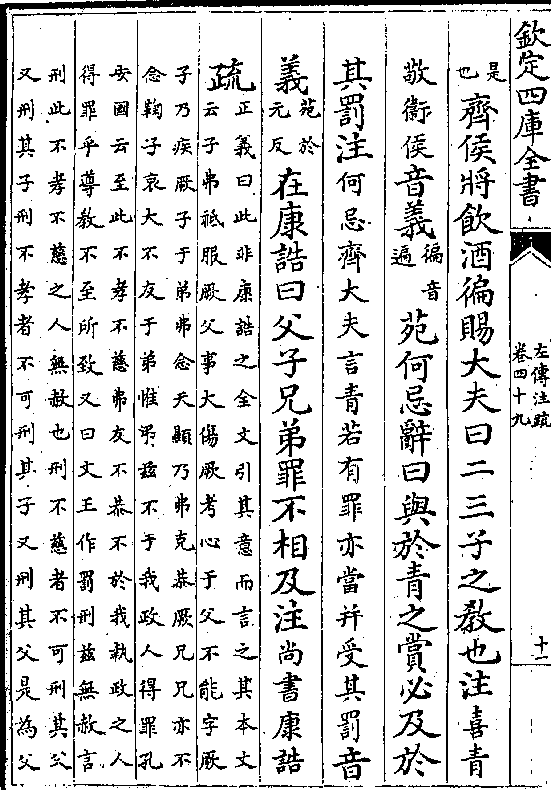 欽定四庫全書
左傳注疏
卷四十九
十一
是
也
齊侯將飲酒徧賜大夫曰二三子之教也注喜青
敬衛侯音義徧音
遍
苑何忌辭曰與於青之賞必及於
其罰注何忌齊大夫言青若有罪亦當并受其罰音
義苑於
元反
在康誥曰父子兄弟罪不相及注尚書康誥
疏正義曰此非康誥之全文引其意而言之其本文
云子弗祗服厥父事大傷厥考心于父不能字厥
子乃疾厥子于弟弗念天顯乃弗克恭厥兄兄亦不
念鞠子哀大不友于弟惟弔兹不于我政人得罪孔
安國云至此不孝不慈弗友不恭不於我執政之人
得罪乎導教不至所致又曰文王作罰刑兹無赦言
刑此不孝不慈之人無赦也刑不慈者不可刑其父
又刑其子刑不孝者不可刑其子又刑其父是為父